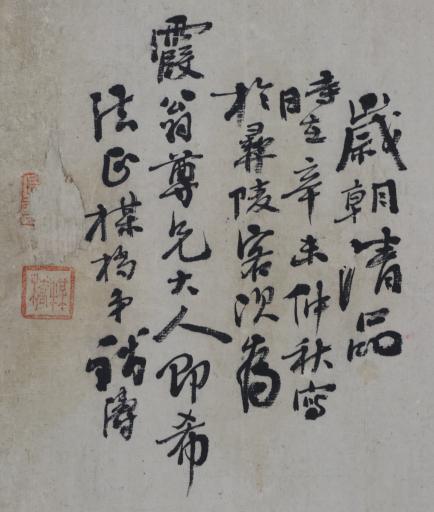 歲朝清品
時在辛未仲秋寫
於彝陵客次為
霞翁尊兄大人即希
法正楳橋弟
楳橋